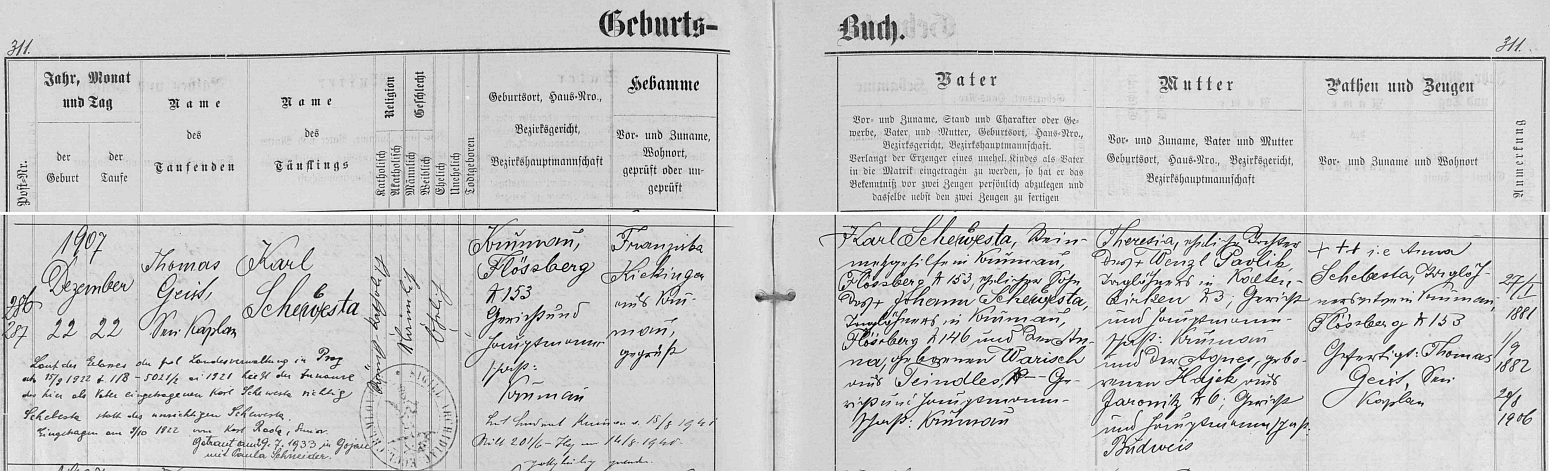 Geburts-
Buch.
311.
311.
Post-Nr.
Jahr, Monat
und Tag
der
Geburt
der
Taufe
Name
des
Taufenden
Name
des
Täuflings
Religion
Katholisch
Akatholisch
Geschlecht
Männlich
Weiblich
Ehelich
Unehelich
Todtgeboren
Geburtsort, Haus-Nro.,
Bezirksgericht,
Bezirkshauptmannschaft
Hebamme
Vor- und Zuname,
Wohnort,
geprüft oder un-
geprüft
Vater
Vor- und Zuname, Stand und Charakter oder Ge-
werbe, Vater und Mutter, Geburtsort, Haus-Nro.,
Bezirksgericht, Bezirkshauptmannschaft.
Verlangt der Erzeuger eines unehel. Kindes als Vater
in die Matrik eingetragen zu werden, so hat er das
Bekenntniß vor zwei Zeugen persönlich abzulegen und
dasselbe nebst den zwei Zeugen zu fertigen
Mutter
Vor- und Zuname, Vater und Mutter
Geburtsort, Haus-Nro., Bezirksgericht,
Bezirkshauptmannschaft
Pathen und Zeugen
Vor- und Zuname und Wohnort
Anmerkung
286
287
1907
Dezember
22 22
Thomas
Geist,
Sen. Kaplan
Karl
Schewesta
Katholisch
Männlich
Ehelich
Krummau,
Flössberg
N 153
Gericht und
Hauptmann-
schaft:
Krummau
Franziska
Kichinger
aus Kru-
mau,
geprüft
Karl Schewesta, Stein-
metzgehilfe in Krummau,
Flössberg N 153, ehelicher Sohn
des + Johann Schewesta,
Taglöhners in Krummau,
Flössberg N 146 und der An-
na, geborenen Warisch
aus Teindles, Ge-
richt und Hauptmann-
schaft: Krummau
Theresia, eheliche Tochter
des + Wenzl Pavlik,
Taglöhners in
N 3, Gericht
und Hauptmann-
schaft: Krummau
und der Agnes, gebo-
renen Hajek aus
Jaronitz N 6; Gericht
und Hauptmannschaft:
Budweis
+++ i.e Anna
Schebesta, Taglöh-
nerswitwe in Krummau,
Flössberg N 153
Gefertigt: Thomas
Geist, Sen.
Kaplan
27/1
1881
1/9
1882
1906
Laut des Erlasses der pol. Landesverwaltung in Prag
vom 15/9 1922 11B - 502 1/2 1921 heißt der Zuname
des hier als Vater eingetragenen Karl Schewesta richtig
Schebesta statt des unrichtigen Schewesta.
Eingetragen am 9/10 1922 von Karl
Getraut am 9.7.1933 in Gojau
mit Paula Schneider.
Laut Krummau v. 15/8 1940